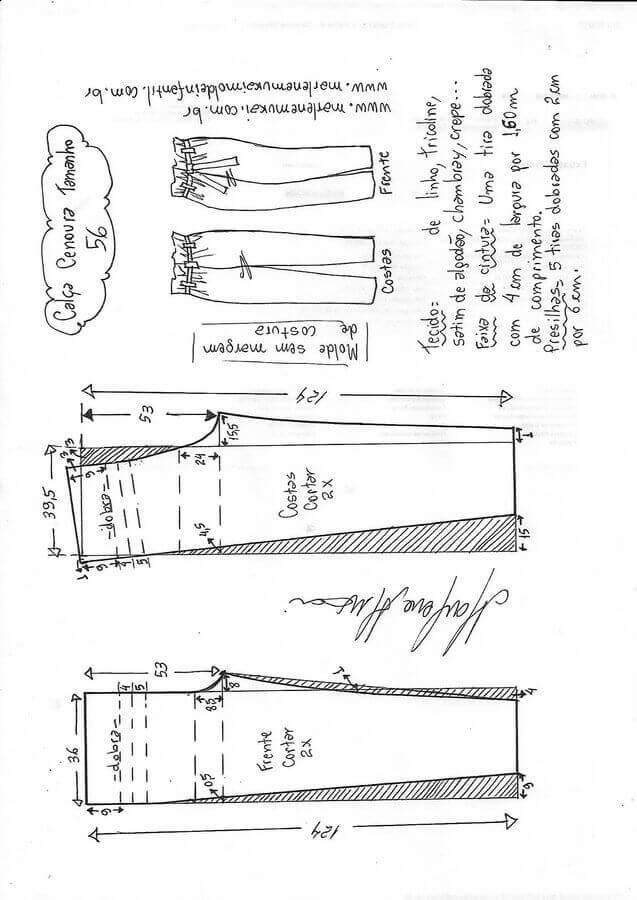 Calça Cenoura Tamanho
56
www.marlenemukai.com.br
www.marlenemukaimoldeinfantil.com.br
Frente
Costas
Molde sem margem
de costura
Tecido= de linho, tricoline,
satim de algodão, chambray, crepe...
Faixa da cintura= Uma tira dobrada
com 4 cm de largura por 1,60 m
de comprimento.
Presilhas= 5 tiras dobradas com 2 cm
por 6 cm.
124
53
3
3
15,5
1
39,5
9
24
-dobra-
Costas
Cortar
2x
4,5
1
9
4
5
15
Marlene Mukai
53
124
4
5
8
8,5
1
4
36
-dobra-
Frente
Cortar
2x
0,5
9
9